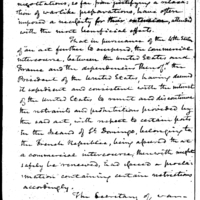 negotiations, so far from justifying a relaxa-
tion of warlike preparations, have often
imposed a necessity for their extension, attended
with the most beneficial effects.
That in pursuance of the 4th section
of an act further to suspend, the commercial
intercourse, between the United States and
France and the dependencies thereof, the
President of the United States, having deemed
it expedient and consistent with the interest
of the United States to remit and discontinue
the restraints and prohibitions provided by
the said act, with respect to certain ports
in the Island of St. Domingo, belonging to
the French Republic, being advised that
a commercial intercourse, therewith might
safely be renewed, had issued a procla-
mation containing certain restrictions
accordingly.
The Secretary of War